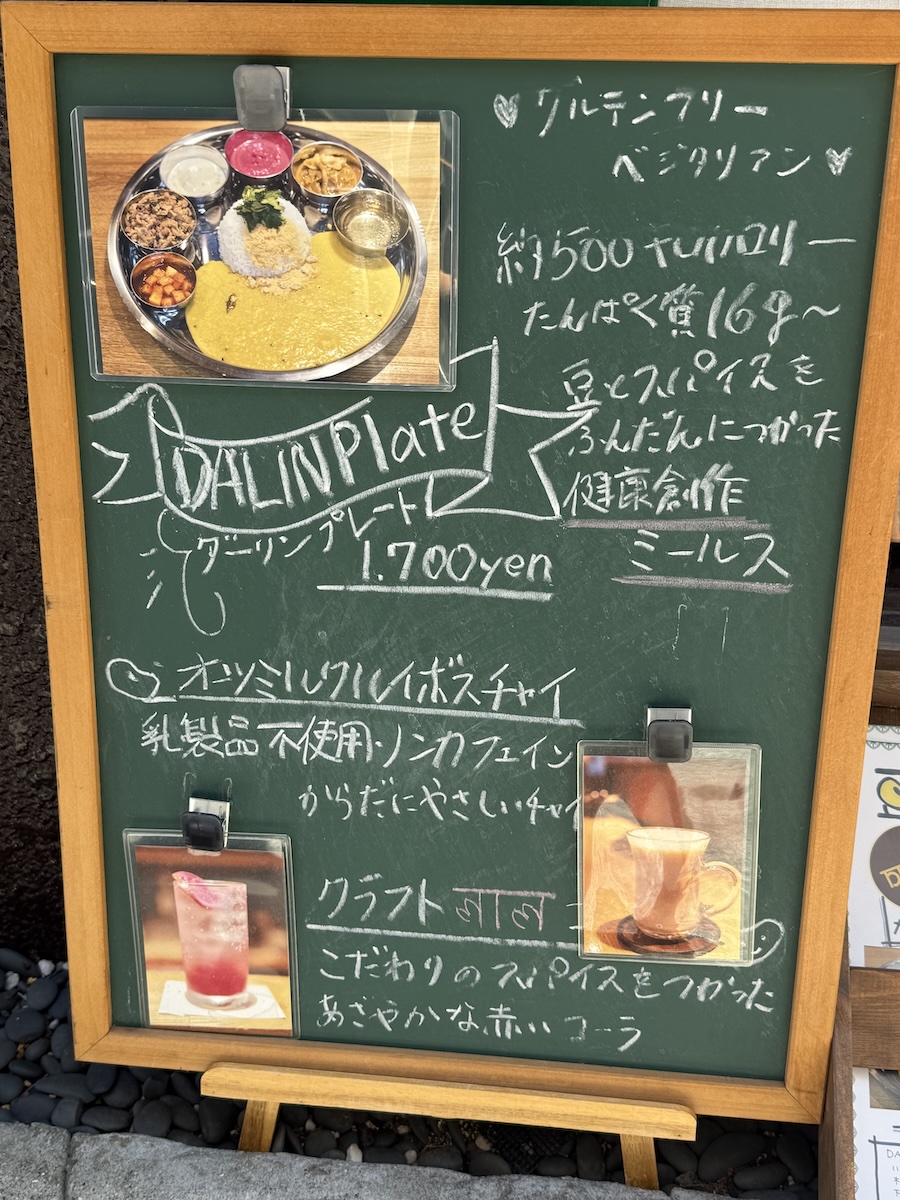 グルテンフリー
ベジタリアン
約500キロカロリー
たんぱく質16g〜
豆とスパイスを
ふんだんにつかった
健康創作
ミールス
DALIN Plate
ダーリンプレート
1.700yen
オーツミルクルイボスチャイ
乳製品不使用・ノンカフェイン
からだにやさしいチャイ
クラフト लाल
こだわりのスパイスをつかった
あざやかな赤いコーラ